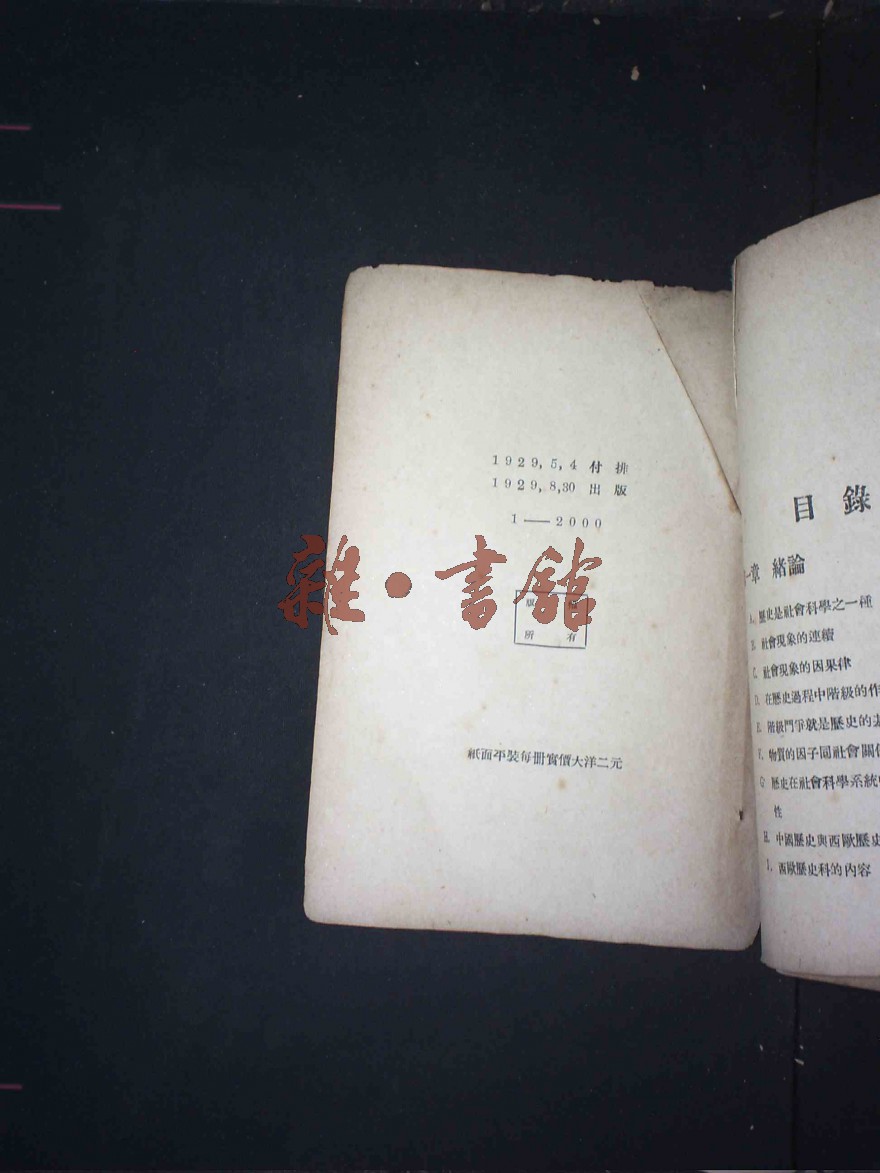 1929, 5, 4 付排
1929, 8, 30 出版
1——2000
雜·書館
版權
所有
紙面平裝每冊實價大洋二元
目錄
一章 緒論
A. 歷史是社會科學之一種
B. 社會現象的連續
C. 社會現象的因果律
D. 在歷史過程中階級的作
E. 階級鬥爭就是歷史的
F. 物質的因子同社會關
G. 歷史在社會科學系統
性
H. 中國歷史與西歐歷史
I. 西歐歷史科的內容